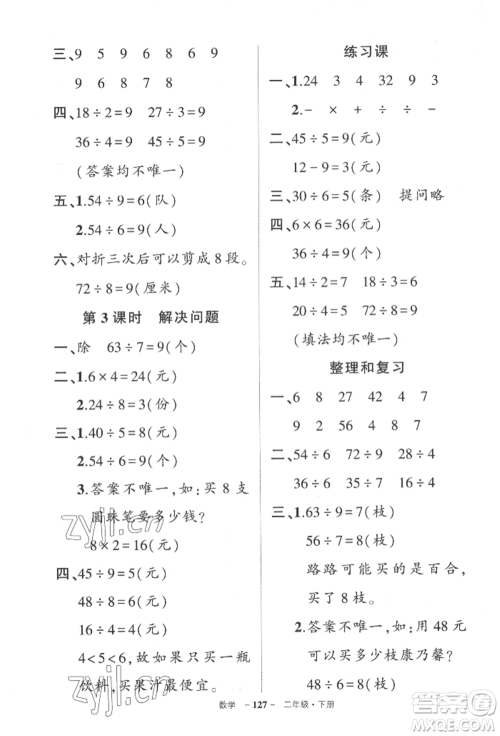 三、9 5 9 6 8 6 9
9 8 7 9 9 8 9
四、18÷2=9 27÷3=9
36÷4=9 45÷5=9
(答案均不唯一)
五、1.54÷9=6(队)
2.54÷6=9(人)
六、对折三次后可以剪成8段。
72÷8=9(厘米)
第3课时 解决问题
一、除 63÷7=9(个)
二、1.6×4=24(元)
2.24÷8=3(份)
三、1.40÷5=8(元)
2.54÷6=9(元)
3.答案不唯一,如:买8支
圆珠笔要多少钱?
8×2=16(元)
四、45÷9=5(元)
48÷8=6(元)
16÷4=4(元)
4<5<6,故如果只买一瓶
饮料,买果汁最便宜。
练习课
一、1.24 3 4 32 9 3
2.- × + ÷ ÷ -
二、45÷5=9(元)
12-9=3(元)
三、30÷6=5(条) 提问略
四、6×6=36(元)
36÷4=9(个)
五、14÷2=7 18÷3=6
24÷3=8 35÷7=5
(填法均不唯一)
整理和复习
一、6 8 27 42 4 7
9 8 8 9 6 7
二、54÷6 72÷9 37÷4
24÷6 30÷6 18÷2
三、1.63÷9=7(枝)
56÷7=8(枝)
路路可能买的是百合,
买了8枝。
2.答案不唯一,如:用48元
可以买多少枝康乃馨?
48÷6=8(枝)
数学 -127- 二年级·下册
zyjl.cn